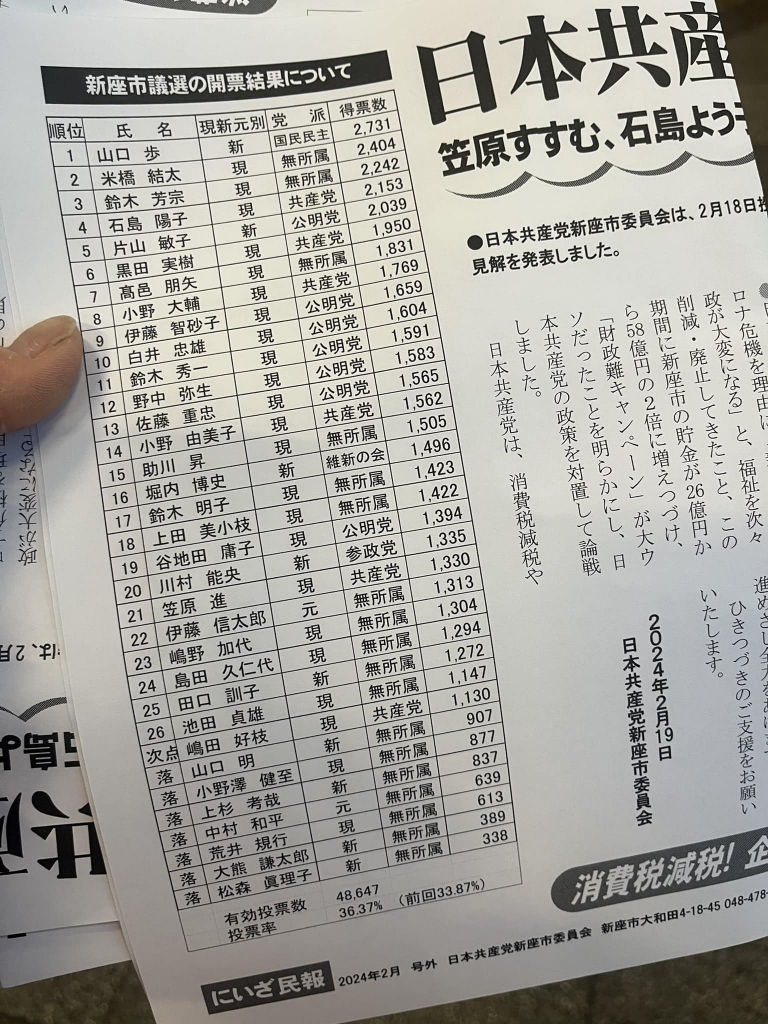 新座市議選の開票結果について
順位 氏 名 現新元別 党 派 得票数
1 山口 歩 新 国民民主 2,731
2 米橋 結太 現 無所属 2,404
3 鈴木 芳宗 現 無所属 2,242
4 石島 陽子 現 共産党 2,153
5 片山 敏子 新 公明党 2,039
6 黒田 実樹 現 共産党 1,950
7 髙邑 朋矢 現 無所属 1,831
8 小野 大輔 現 共産党 1,769
9 伊藤 智砂子 現 公明党 1,659
10 白井 忠雄 現 公明党 1,604
11 鈴木 秀一 現 公明党 1,591
12 野中 弥生 現 公明党 1,583
13 佐藤 重忠 現 公明党 1,565
14 小野 由美子 現 共産党 1,562
15 助川 昇 現 無所属 1,505
16 堀内 博史 新 維新の会 1,496
17 鈴木 明子 現 無所属 1,423
18 上田 美小枝 現 無所属 1,422
19 谷地田 庸子 現 公明党 1,394
20 川村 能央 新 参政党 1,335
21 笠原 進 現 共産党 1,330
22 伊藤 信太郎 元 無所属 1,313
23 嶋野 加代 現 無所属 1,304
24 島田 久仁代 現 無所属 1,294
25 田口 訓子 新 無所属 1,272
26 池田 貞雄 現 無所属 1,147
次点 嶋田 好枝 現 共産党 1,130
落 山口 明 新 無所属 907
落 小野澤 健至 現 無所属 877
落 上杉 考哉 新 無所属 837
落 中村 和平 元 無所属 639
落 荒井 規行 現 無所属 613
落 大熊 謙太郎 新 無所属 389
落 松森 眞理子 新 無所属 338
有効投票数 48,647
投票率 36.37% (前回33.87%)
日本共産
笠原すすむ、石島よう子
●日本共産党新座市委員会は、2月18日投
見解を発表しました。
ロナ危機を理由に
政が大変になる」と、福祉を次々
削減・廃止してきたこと、この
期間に新座市の貯金が26億円か
ら58億円の2倍に増えつづけ、
「財政難キャンペーン」が大ウ
ソだったことを明らかにし、日
本共産党の政策を対置して論戦
しました。
日本共産党は、消費税減税や
ひきつづきのご支援をお願い
いたします。
2024年2月19日
日本共産党新座市委員会
消費税減税! 企
にいざ民報 2024年2月 号外 日本共産党新座市委員会 新座市大和田4-18-45 048-478-